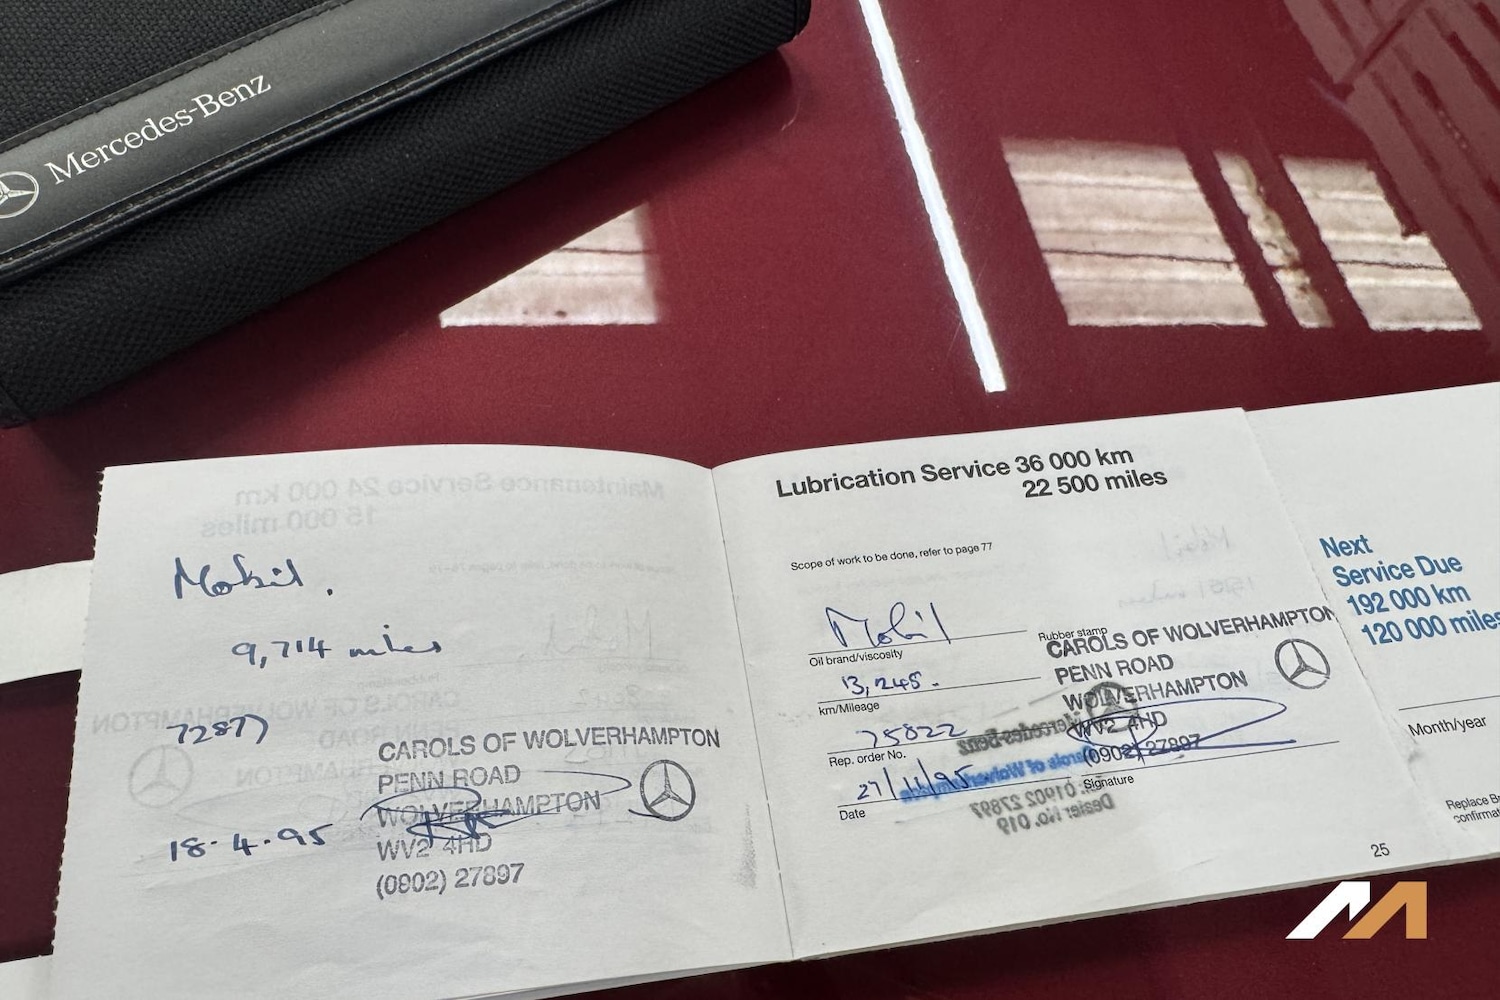 Mercedes-Benz
Maintenance Service 24 000 km
15 000 miles
Mobil.
9,714 miles
72877
18.4.95
CAROLS OF WOLVERHAMPTON
PENN ROAD
WOLVERHAMPTON
WV2 4HD
(0902) 27897
Lubrication Service 36 000 km
22 500 miles
Scope of work to be done, refer to page 77
Mobil
Oil brand/viscosity
13,245.
km/Mileage
75022
Rep. order No.
27/11/95
Date
Rubber stamp
CAROLS OF WOLVERHAMPTON
PENN ROAD
WOLVERHAMPTON
WV2 4HD
(0902) 27897
Signature
Mercedes-Benz
Carols of Wolverhampton
01902 27897
Dealer No. 019
25
Next
Service Due
192 000 km
120 000 miles
Month/year
Replace